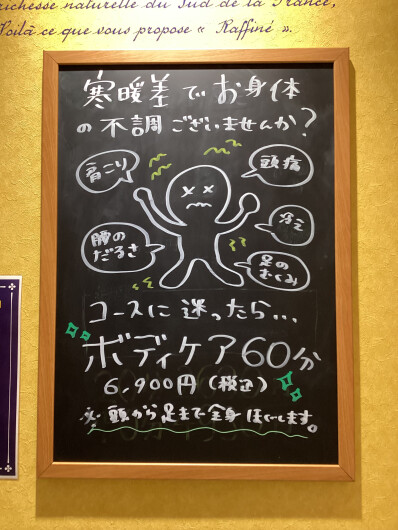 richesse naturelle du Sud de la France,
Voilà ce que vous propose « Raffiné ».
寒暖差でお身体
の不調ございませんか?
肩こり
頭痛
冷え
腰の
だるさ
足の
むくみ
コースに迷ったら...
ボディケア60分
6,900円(税込)
※頭から足まで全身ほぐします。